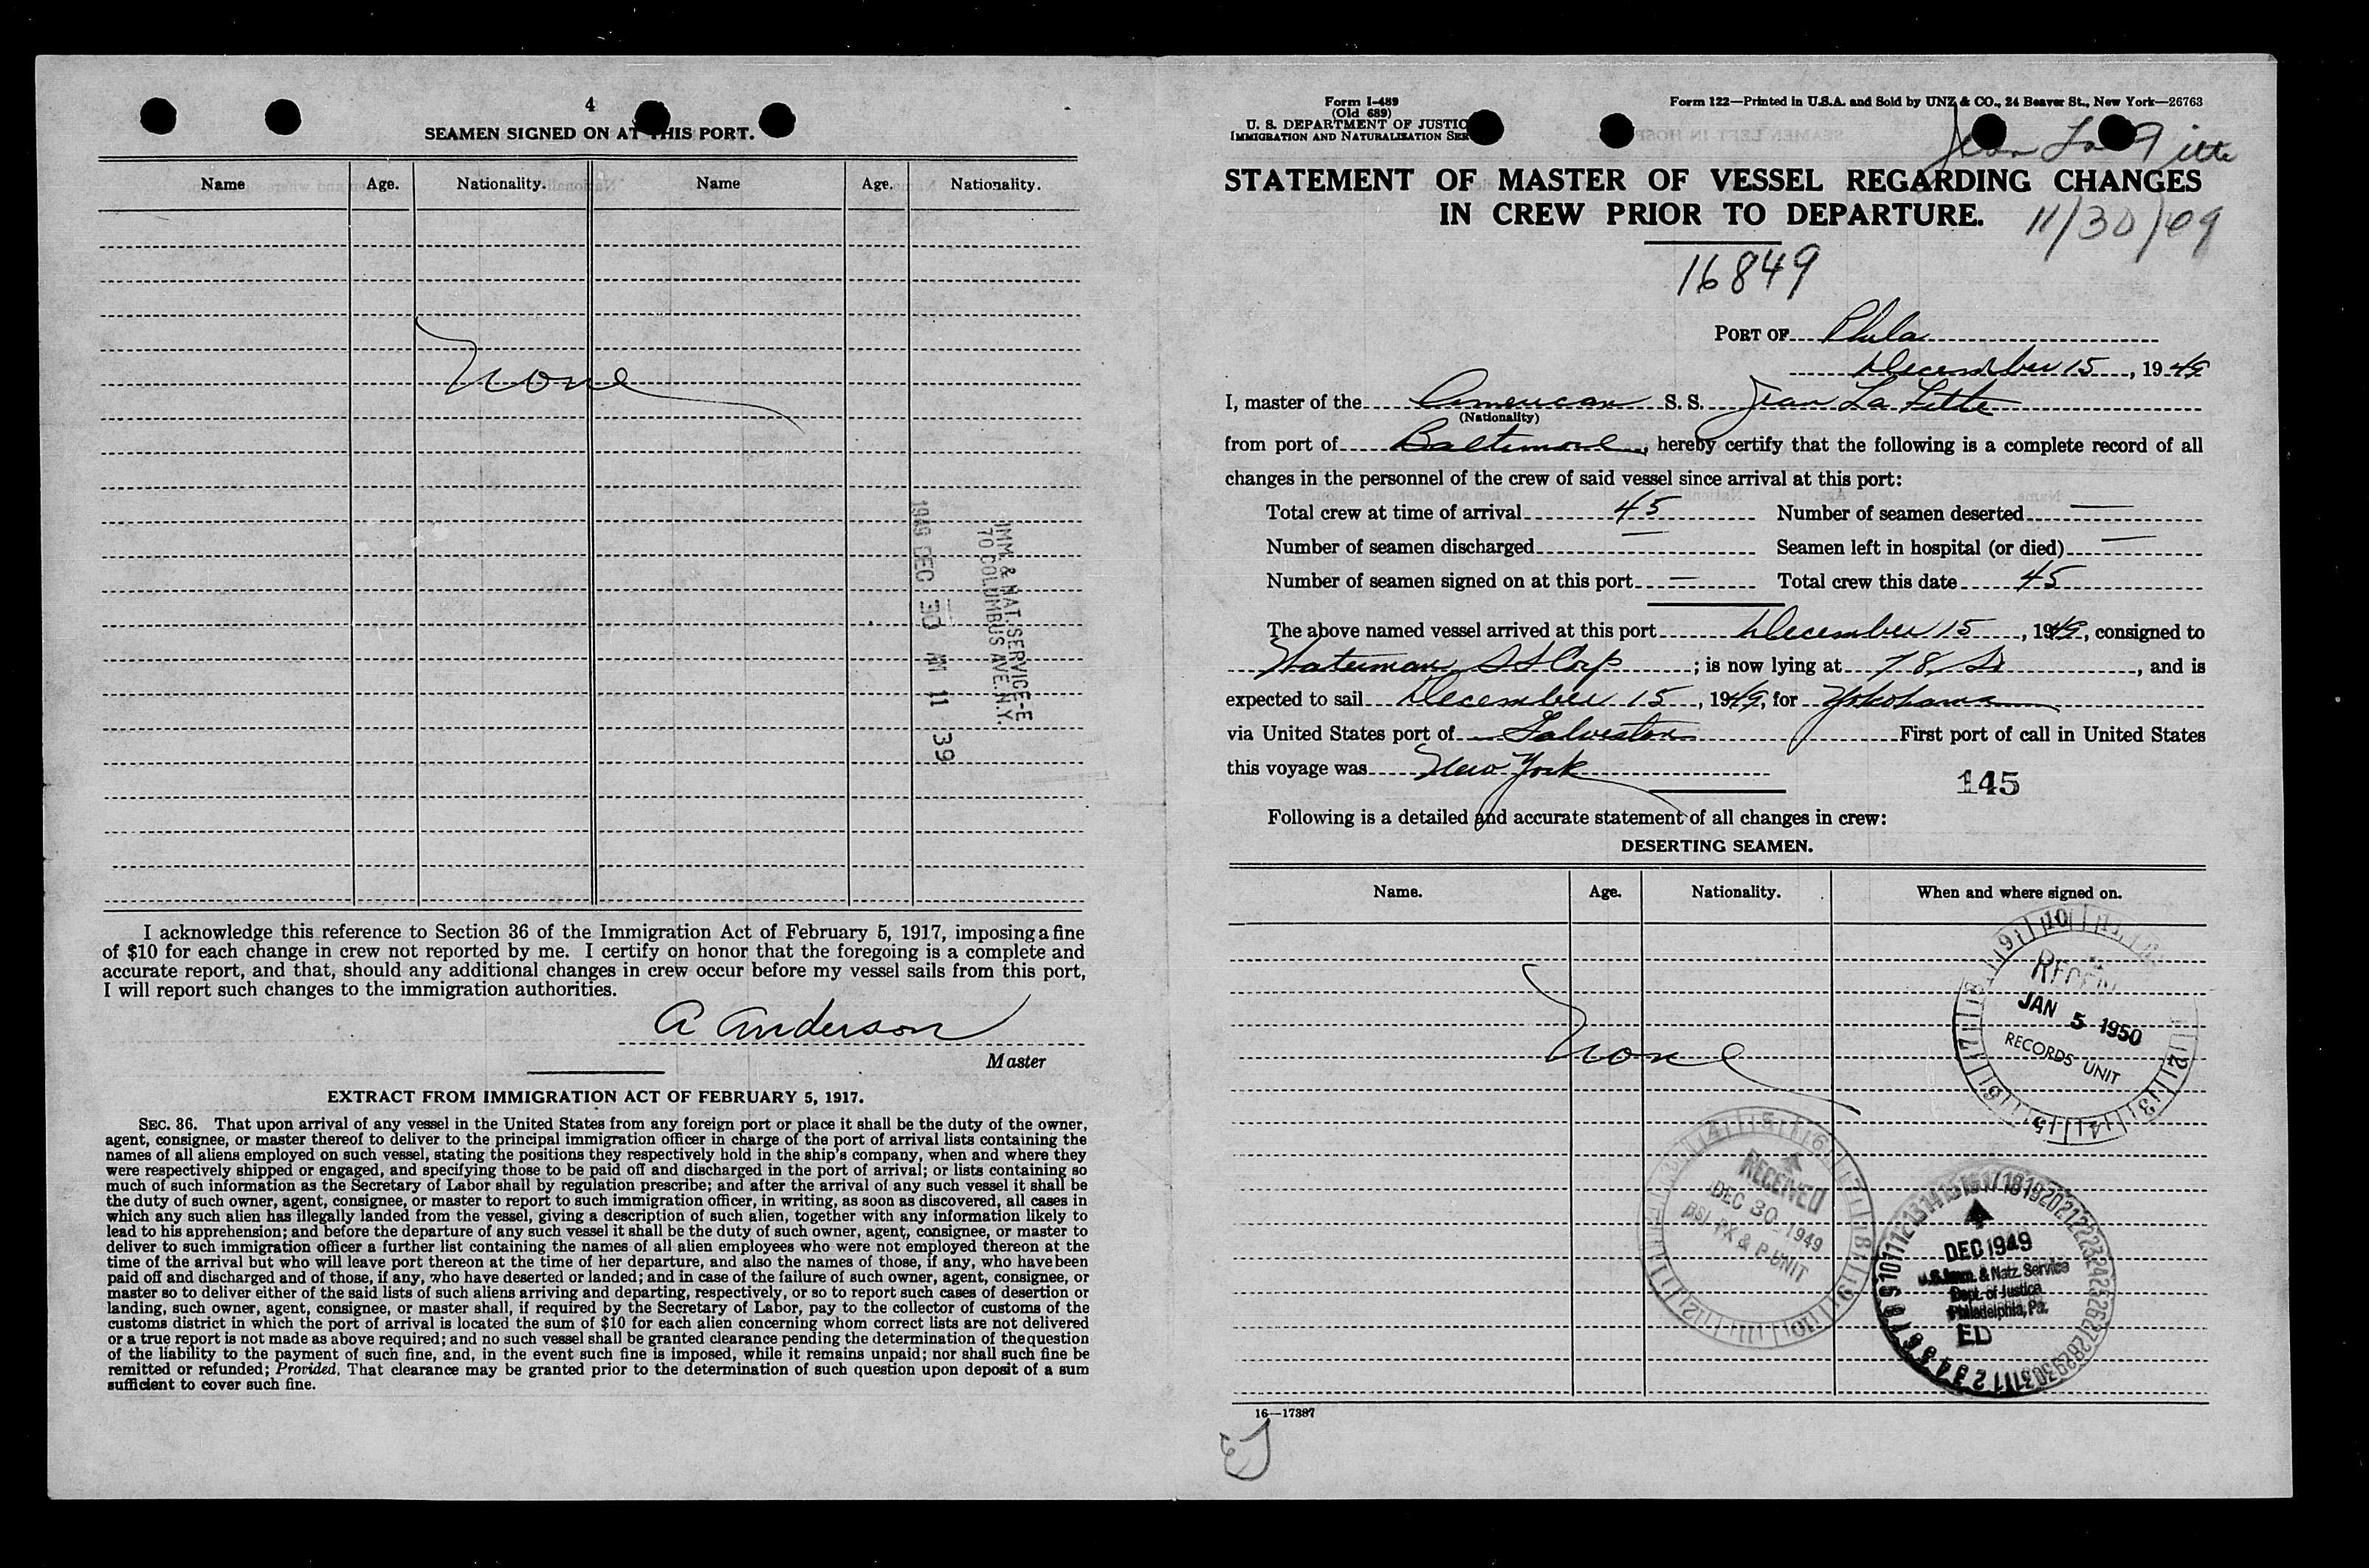 4
SEAMEN SIGNED ON AT THIS PORT.
Name Age. Nationality. Name Age. Nationality.
None
IMM. & NAT. SERVICE-E
70 COLUMBUS AVE. N.Y.
1949 DEC 30 AM 11 39
I acknowledge this reference to Section 36 of the Immigration Act of February 5, 1917, imposing a fine
of $10 for each change in crew not reported by me. I certify on honor that the foregoing is a complete and
accurate report, and that, should any additional changes in crew occur before my vessel sails from this port,
I will report such changes to the immigration authorities.
A Anderson
Master
EXTRACT FROM IMMIGRATION ACT OF FEBRUARY 5, 1917.
SEC. 36. That upon arrival of any vessel in the United States from any foreign port or place it shall be the duty of the owner,
agent, consignee, or master thereof to deliver to the principal immigration officer in charge of the port of arrival lists containing the
names of all aliens employed on such vessel, stating the positions they respectively hold in the ship's company, when and where they
were respectively shipped or engaged, and specifying those to be paid off and discharged in the port of arrival; or lists containing so
much of such information as the Secretary of Labor shall by regulation prescribe; and after the arrival of any such vessel it shall be
the duty of such owner, agent, consignee, or master to report to such immigration officer, in writing, as soon as discovered, all cases in
which any such alien has illegally landed from the vessel, giving a description of such alien, together with any information likely to
lead to his apprehension; and before the departure of any such vessel it shall be the duty of such owner, agent, consignee, or master to
deliver to such immigration officer a further list containing the names of all alien employees who were not employed thereon at the
time of the arrival but who will leave port thereon at the time of her departure, and also the names of those, if any, who have been
paid off and discharged and of those, if any, who have deserted or landed; and in case of the failure of such owner, agent, consignee, or
master so to deliver either of the said lists of such aliens arriving and departing, respectively, or so to report such cases of desertion or
landing, such owner, agent, consignee, or master shall, if required by the Secretary of Labor, pay to the collector of customs of the
customs district in which the port of arrival is located the sum of $10 for each alien concerning whom correct lists are not delivered
or a true report is not made as above required; and no such vessel shall be granted clearance pending the determination of the question
of the liability to the payment of such fine, and, in the event such fine is imposed, while it remains unpaid; nor shall such fine be
remitted or refunded; Provided, That clearance may be granted prior to the determination of such question upon deposit of a sum
sufficient to cover such fine.
Form I-489
(Old 689)
U. S. DEPARTMENT OF JUSTIC
IMMIGRATION AND NATURALIZATION SER
Form 122—Printed in U.S.A. and Sold by UNZ & CO., 24 Beaver St., New York—26763
Jean La Fitte
STATEMENT OF MASTER OF VESSEL REGARDING CHANGES
IN CREW PRIOR TO DEPARTURE.
11/30/49
16849
PORT OF Phila
December 15, 1949
I, master of the American S. S. Jean La Fitte
(Nationality)
from port of Baltimore, hereby certify that the following is a complete record of all
changes in the personnel of the crew of said vessel since arrival at this port:
Total crew at time of arrival 45 Number of seamen deserted —
Number of seamen discharged — Seamen left in hospital (or died) —
Number of seamen signed on at this port — Total crew this date 45
The above named vessel arrived at this port December 15, 1949, consigned to
Waterman SS Corp; is now lying at 78 So, and is
expected to sail December 15, 1949, for Yokohama
via United States port of Galveston First port of call in United States
this voyage was New York
145
Following is a detailed and accurate statement of all changes in crew:
DESERTING SEAMEN.
Name. Age. Nationality. When and where signed on.
None
JAN 5 1950
RECORDS UNIT
RECEIVED
DEC 30 1949
BSI PX & P UNIT
DEC 1949
U.S. Imm. & Natz. Service
Dept. of Justice
Philadelphia, Pa.
ED
16—17387